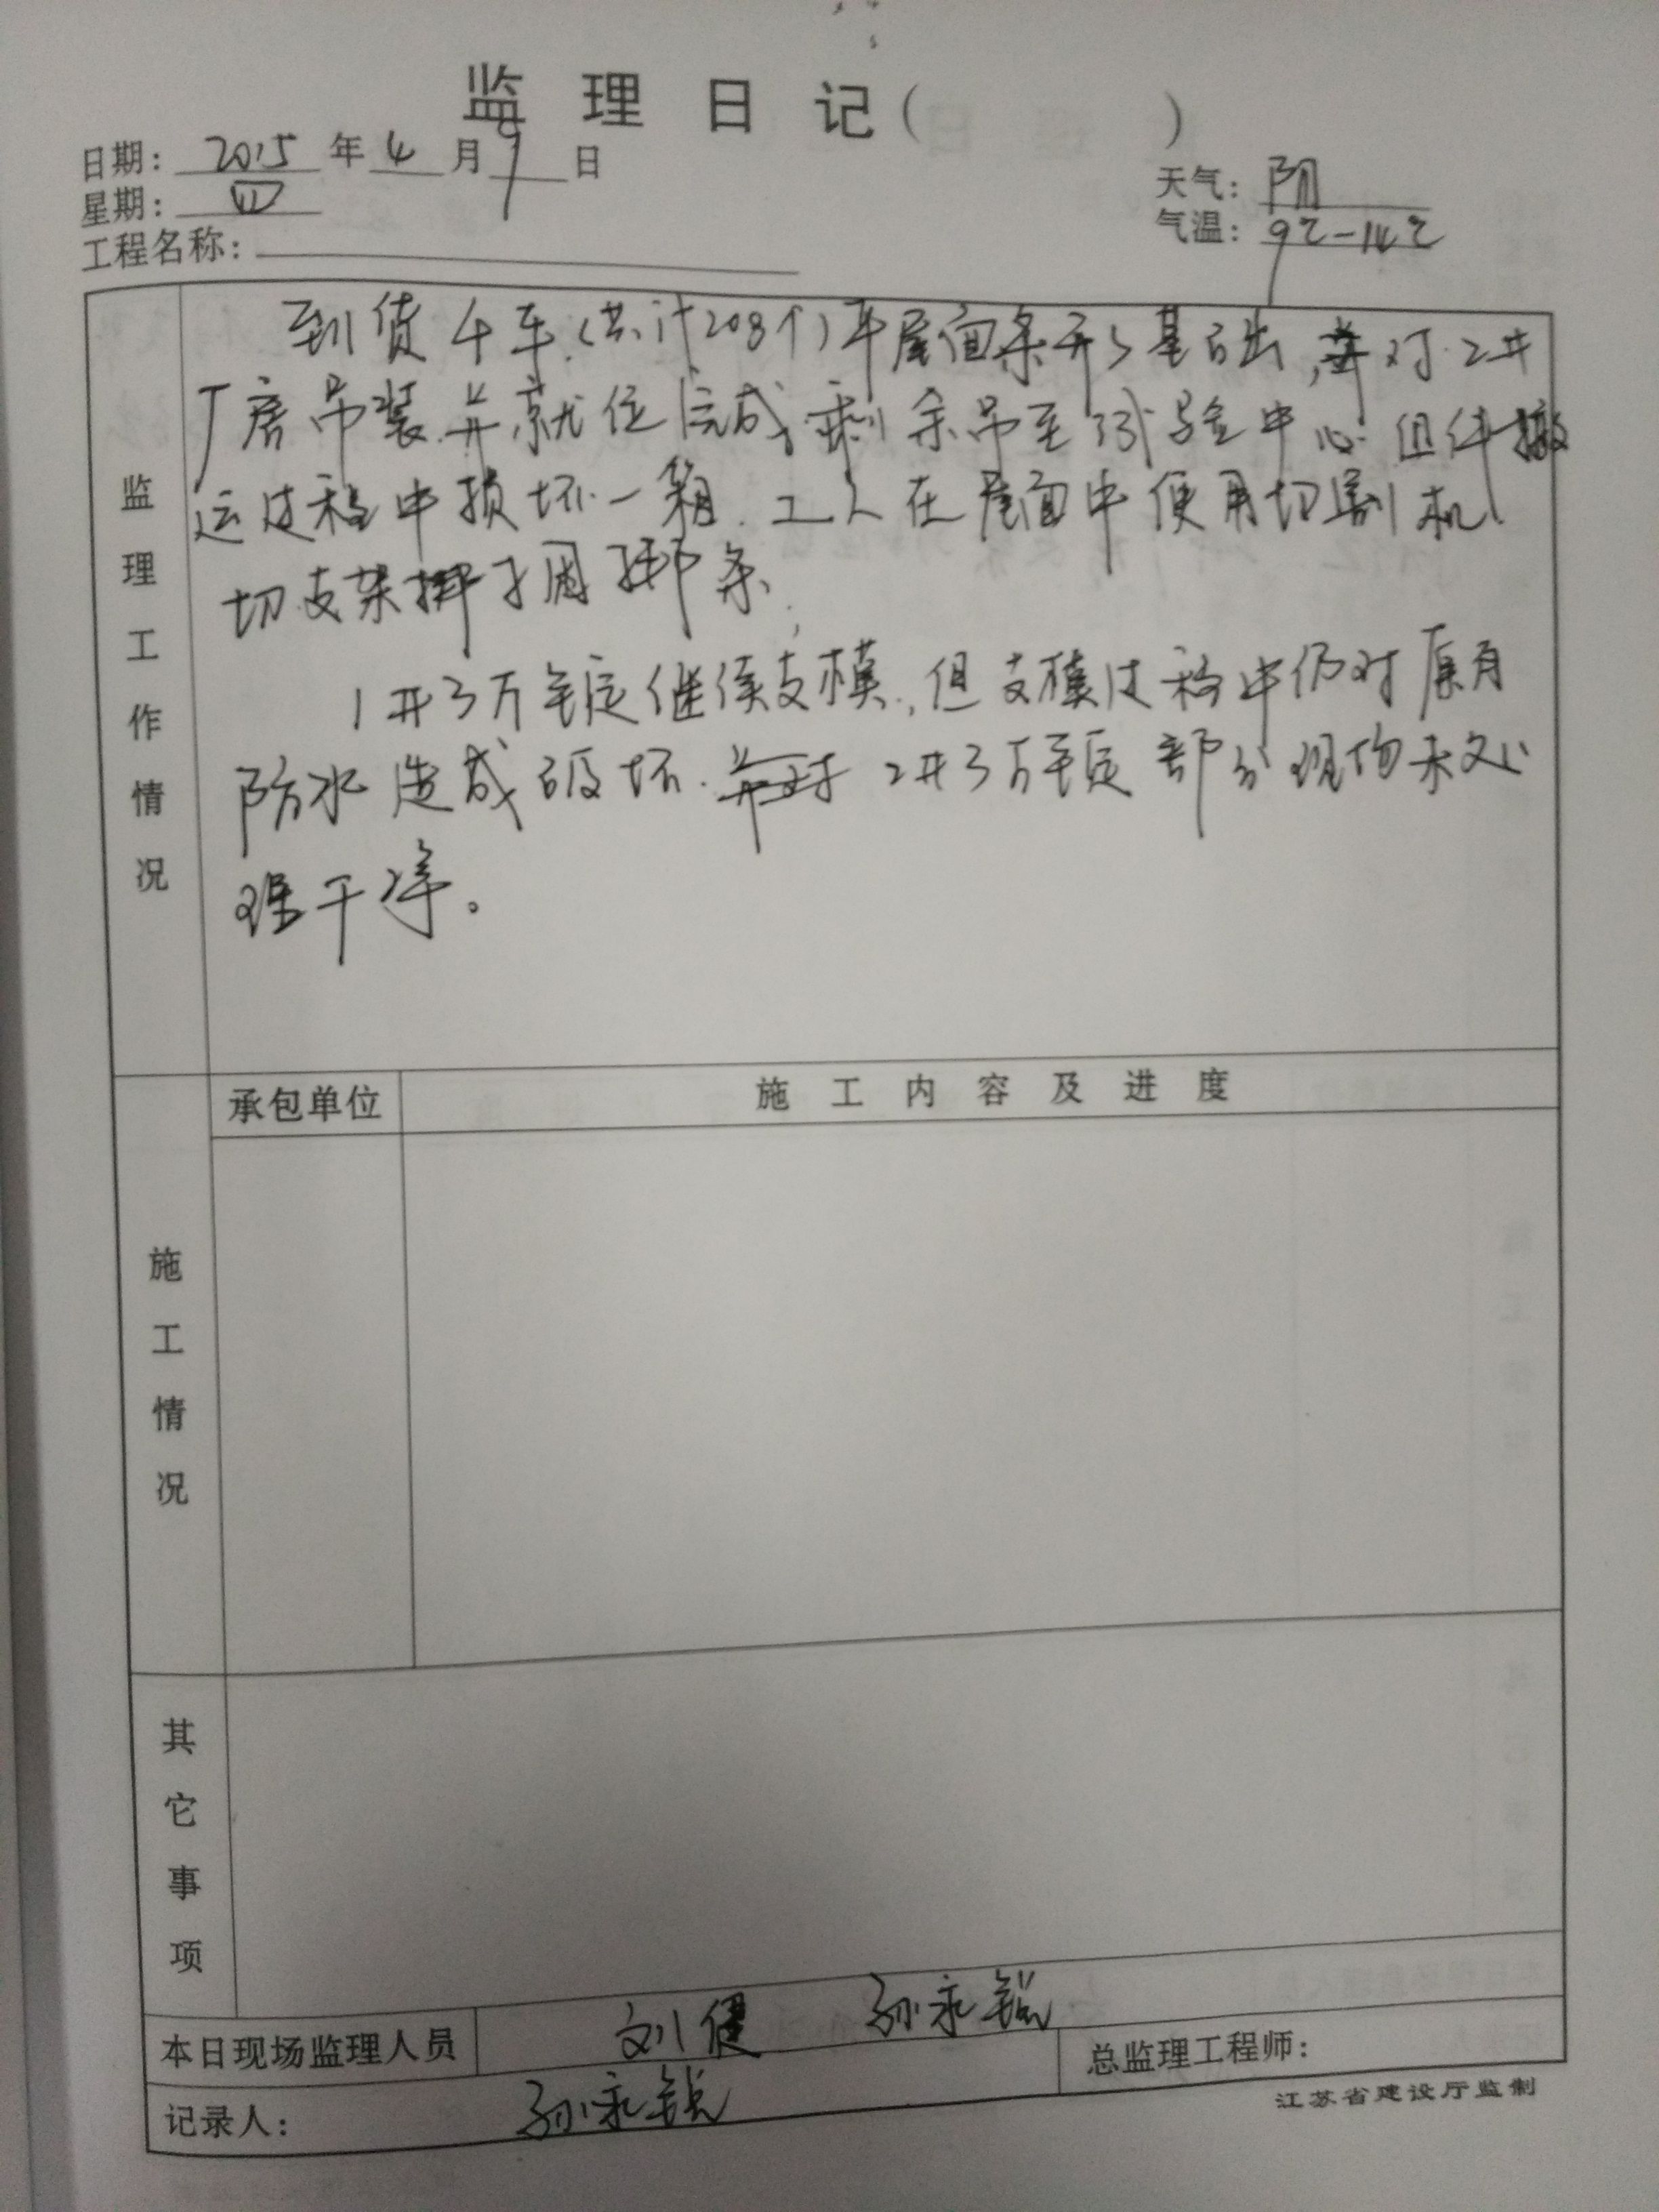 监 理 日 记（ ）
日期： 2015 年 4 月 9 日
星期： 四
天气： 阴
气温： 9℃-14℃
工程名称：
监理工作情况
到货4车（共计208个）平屋面条形基础，并对2#
厂房吊装并就位完成，剩余吊至试验中心 组件搬
运过程中损坏一箱．工人在屋面中使用切割机
切支架
1#3万锭继续支模，但支模过程中仍对原有
防水造成破坏．2#3万锭部分现场未处
理干净。
施工情况
承包单位
施 工 内 容 及 进 度
其它事项
本日现场监理人员 刘健 孙永锐
总监理工程师：
记录人： 孙永锐
江苏省建设厅监制